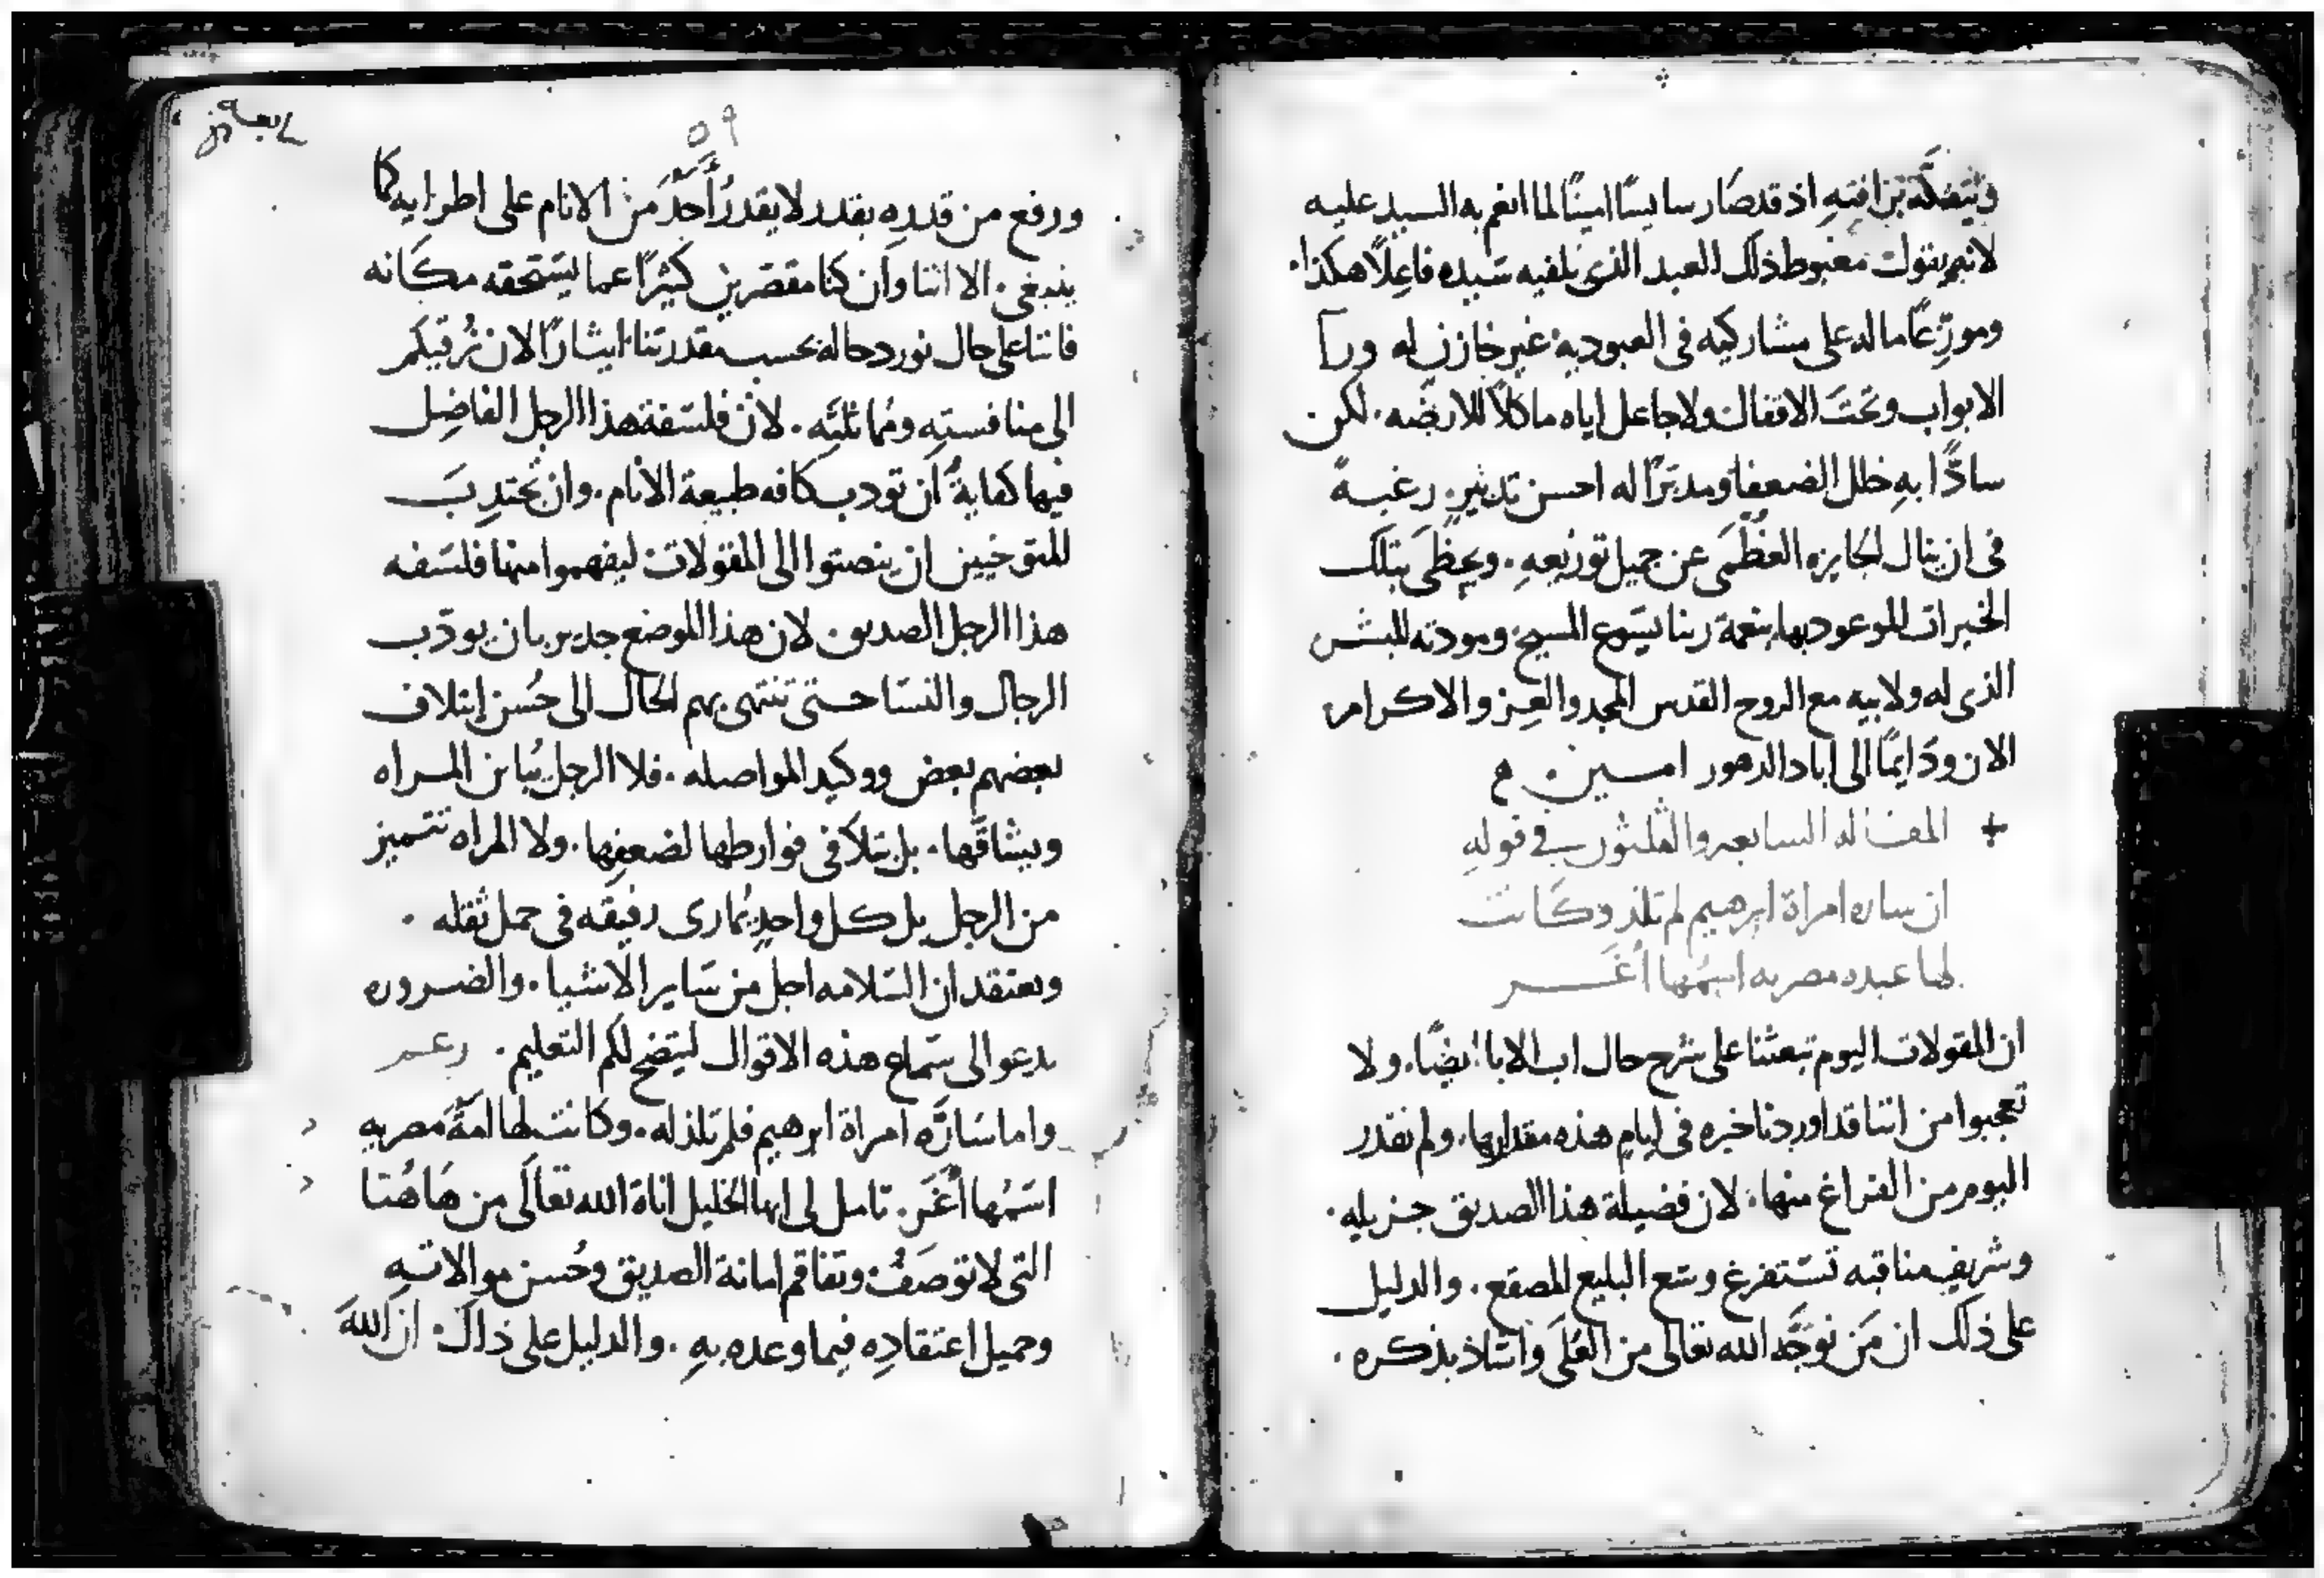 ويتفكه بزافته اذ قد صار سايسًا امينًا لما انعم به السيد عليه
لانه يقول مغبوط ذلك العبد الذي يلفيه سيده فاعلًا هكذا.
وموزعًا ماله على مشاركيه في العبودية غير خازن له ورا
الابواب وتحت الاقفال ولا جاعل اياه ماكلًا للارضه. لكن
سادًّا به خلل الضعفا ومدبرًا له احسن تدبير. رغبةً
في ان ينال الجايزه العظمى عن جميل توزيعه. ويحظى بتلك
الخيرات الموعود بها بنعمة ربنا يسوع المسيح ومودته للبشر
الذي له ولابيه مع الروح القدس المجد والعز والاكرام
الان ودايمًا الى اباد الدهور امين.
+ المقاله السابعه والثلثون في قوله
ان ساره امراة ابرهيم لم تلد وكانت
لها عبده مصريه اسمها أغَر
ان المقولات اليوم تبعثنا على شرح حال اب الابا ايضًا. ولا
تعجبوا من اننا قد اوردنا خبره في ايام هذه مقدارها. ولم نقدر
اليوم من الفراغ منها. لان فضيلة هذا الصديق جزيله.
وشريف مناقبه تستفرغ وسع البليغ المصقع. والدليل
على ذلك ان مَن نوّجه الله تعالى من العُلَى واشاد بذكره.
٥٩
ورفع من قدره بقدر لا يقدرُ أحدٌ من الانام على اطرايه كما
ينبغي. الا اننا وان كنا مقصرين كثيرًا عما يستحقه مكانه
فاننا على حال نورد حاله بحسب مقدرتنا ايثارًا لان نُرقيكم
الى منافسته ومُماثلته. لان فلسفة هذا الرجل الفاضل
فيها كفايةٌ ان تودب كافه طبيعة الانام. وان تجتدب
المتوخيين ان ينصتوا الى المقولات ليفهموا منها فلسفه
هذا الرجل الصديق. لان هذا الموضع جدير بان يودّب
الرجال والنسا حتى تنتهي بهم الحال الى حُسن ايتلاف
بعضهم بعض ووكيد المواصله. فلا الرجل يُباين المراه
ويشاقّها. بل يتلافى فوارطها لضعفها. ولا المراه تتميز
من الرجل بل كل واحدٍ يُماري رفيقه في حمل ثقله.
ويعتقد ان السلامه اجل من ساير الاشيا. والضروره
يدعو الى سماع هذه الاقوال ليتضح لكم التعليم. زعم
واما سارّه امراة ابرهيم فلم تلد له. وكانت لها امةٌ مصريه
اسمُها أغَر. تامل لي ايها الخليل اناة الله تعالى من هاهُنا
التي لا توصَف وتفاقم امانة الصديق وحُسن موالاته
وجميل اعتقاده فيما وعده به. والدليل على ذاك. ان الله